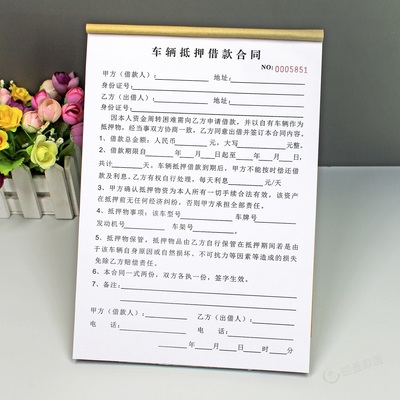 车辆抵押借款合同
NO:0005851
甲方（借款人）：________地址:________
身份证号:________
乙方（出借人）：________地址:________
身份证号:________
因本人资金周转困难需向乙方申请借款，并以自有车辆作为
抵押物，经当事双方协商一致，乙方同意出借并签订本合同内容。
1、借款总金额：人民币________元，大写________元整。
2、借款期限自____年____月____日起至____年____月____日，
共计____天。车辆抵押借款到期后，甲方不能按时偿还借
款及利息。乙方有权自行处理，每天利息____元/天
3、甲方确认抵押物资为本人所有一切手续合法有效，该资产
在抵押前无任何经济纠纷，否则甲方承担全部责任。
4、抵押物事项：该车型号________车牌号________
发动机号________车架号________.
5、抵押物保管，抵押物品由乙方自行保管在抵押期间若是由
于该车辆自身原因或自然损坏、不可抗力等因素等造成的损失
免除乙方赔偿责任。
6、本合同一式两份，双方各执一份，签字生效。
7、备注：________
甲方（借款人）：________乙方（出借人）：________
电 话：________电 话：________
____年____月____日____时____分